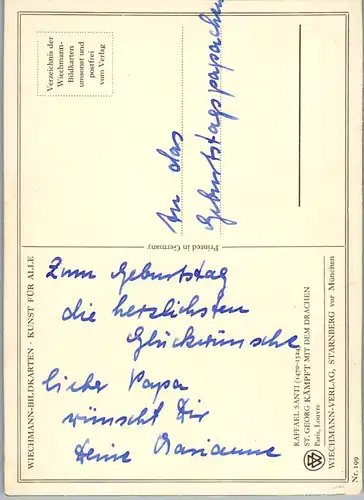 Verzeichnis der
Wiechmann-
Bildkarten
umsonst und
postfrei
vom Verlag
An das
Geburtstagspapachen
Printed in Germany
WIECHMANN-BILDKARTEN · KUNST FÜR ALLE
Zum Geburtstag
die herzlichsten
Glückwünsche
lieber Papa
wünscht Dir
Deine Marianne
RAFFAEL SANTI (1479-1524)
ST. GEORG KÄMPFT MIT DEM DRACHEN
Paris, Louvre
WIECHMANN-VERLAG, STARNBERG vor München
Nr. 199